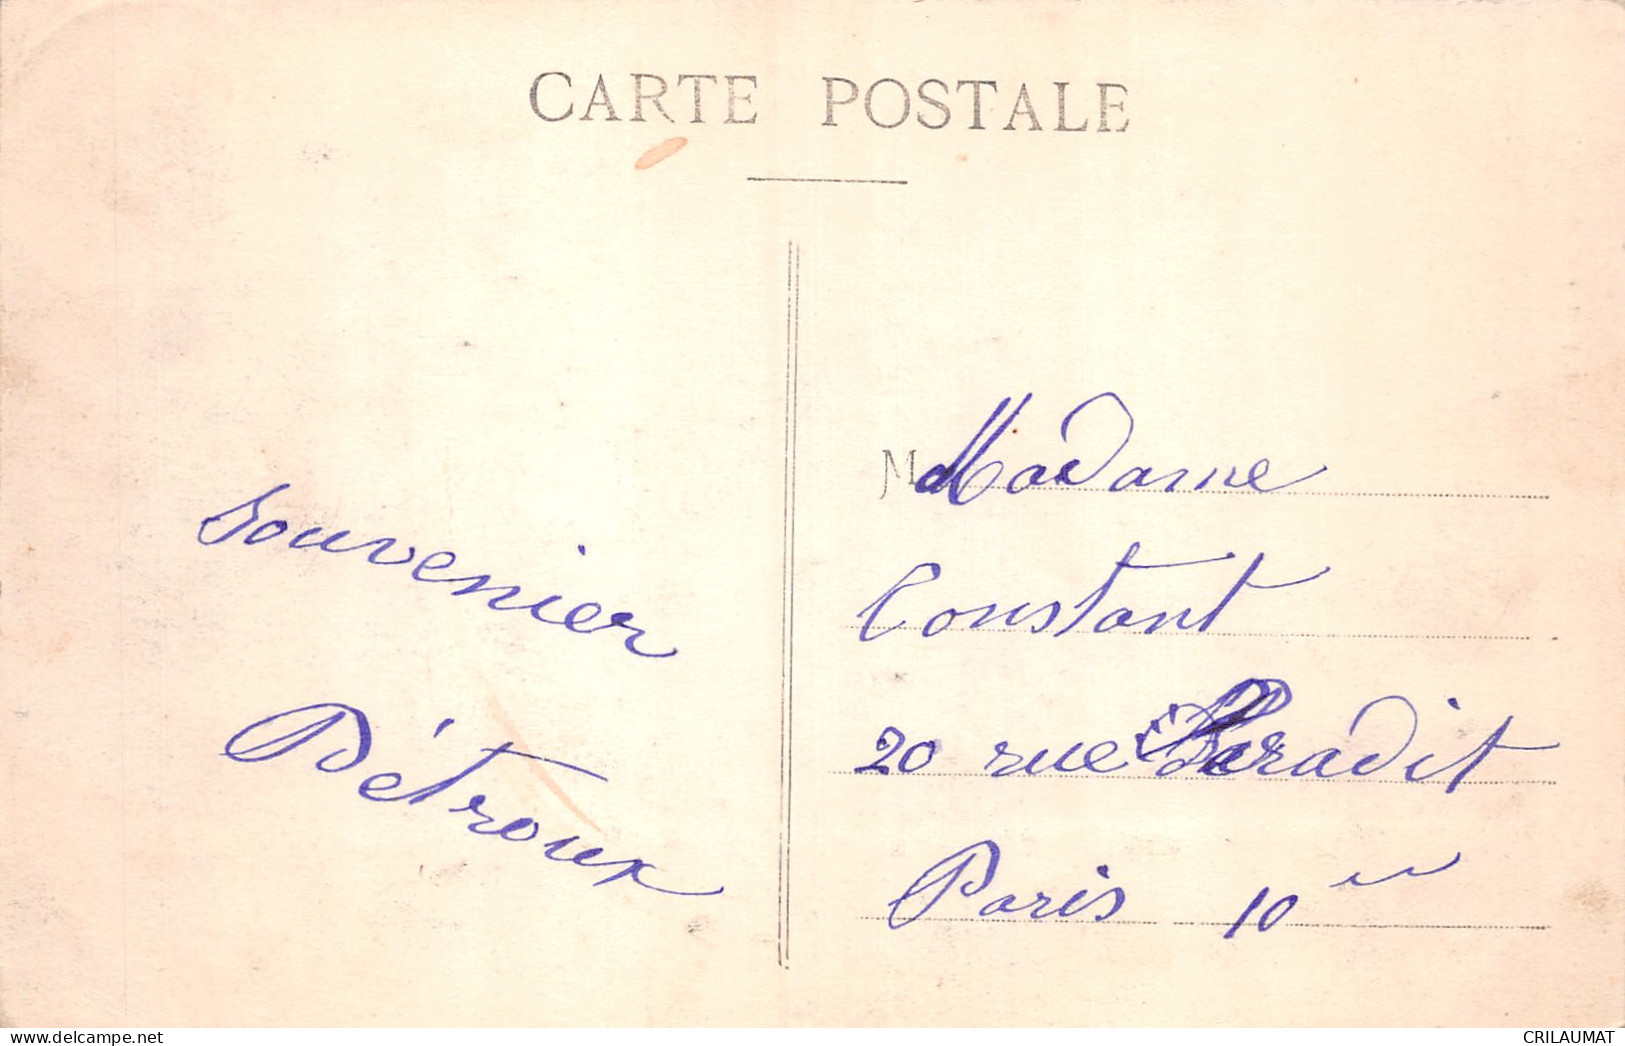 CARTE POSTALE
souvenier
Pétroux
M Madame
Constant
20 rue Paradit
Paris 10
www.delcampe.net
CRILAUMAT